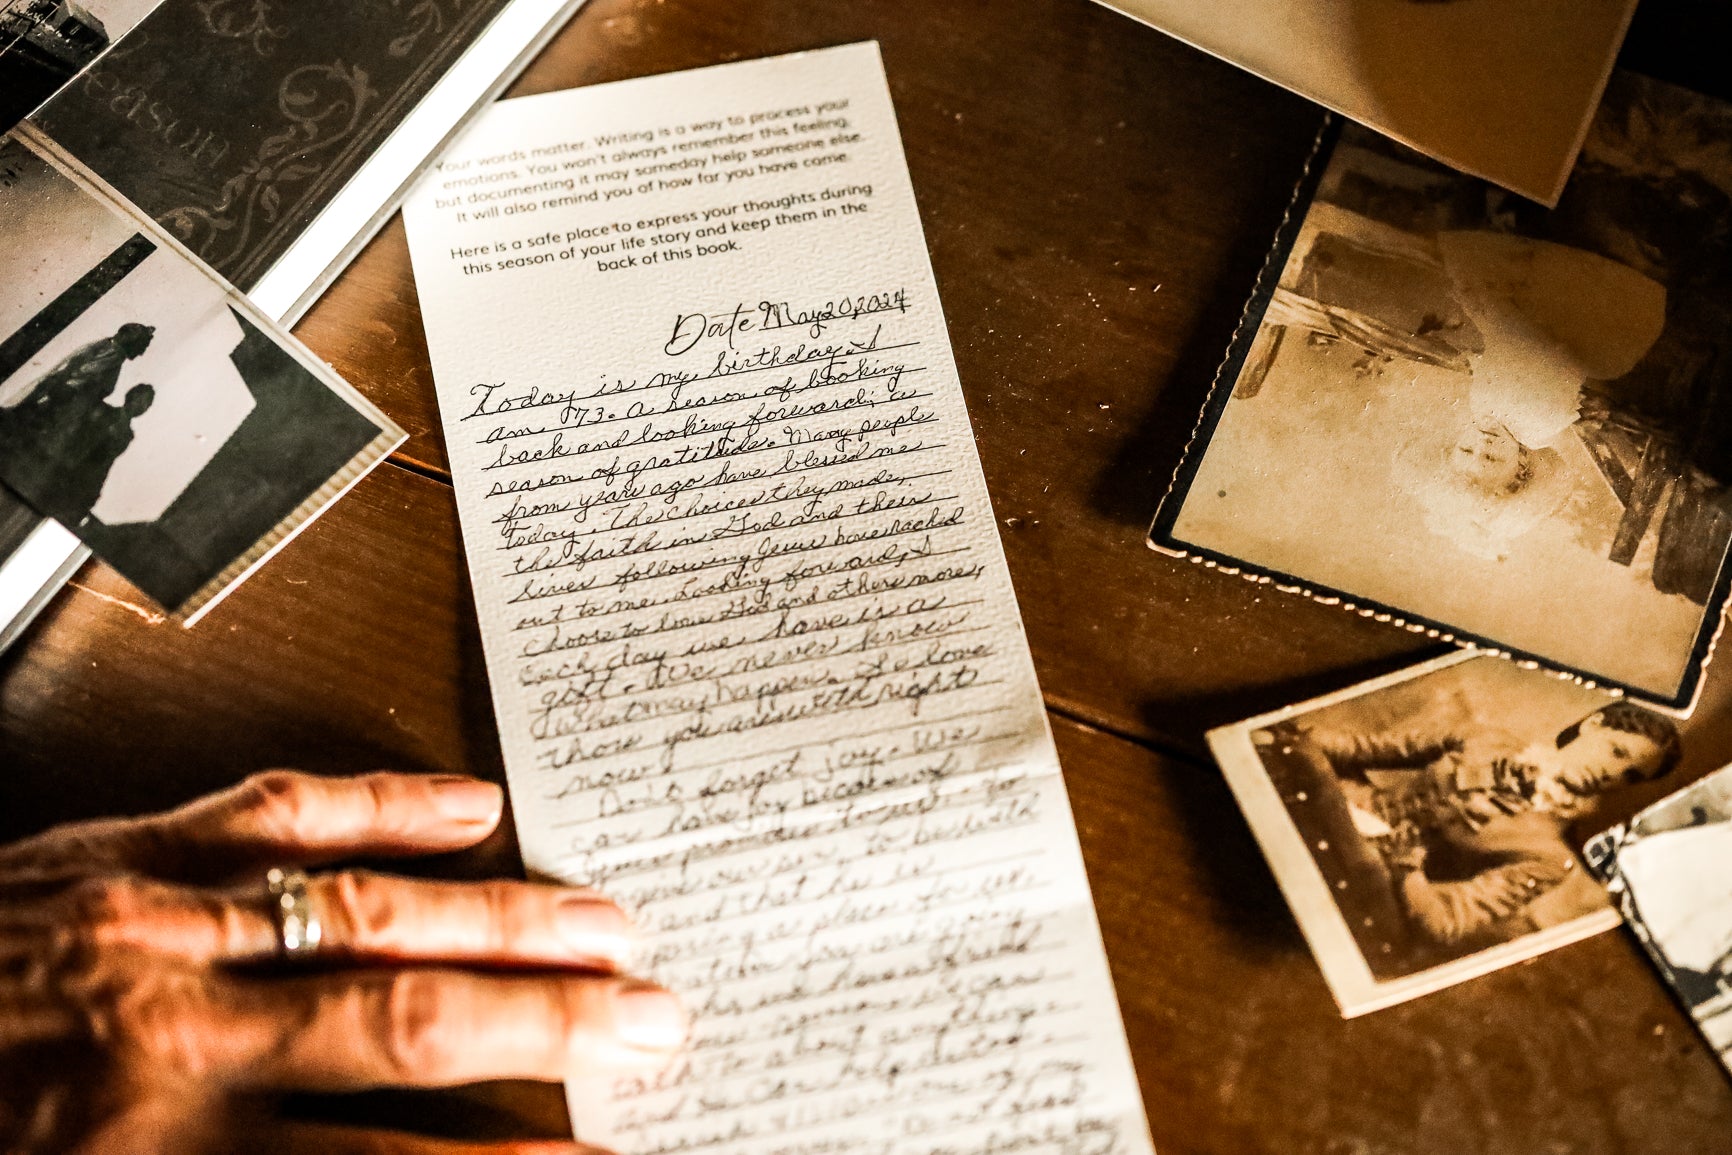 eason
Your words matter. Writing is a way to process your
emotions. You won't always remember this feeling,
but documenting it may someday help someone else.
It will also remind you of how far you have come.
Here is a safe place to express your thoughts during
this season of your life story and keep them in the
back of this book.
Date May 20, 2024
Today is my birthday. I
am 73. A season of looking
back and looking forward; a
season of gratitude. Many people
from years ago have blessed me
today. The choices they made,
the faith in God and their
lives following Jesus have reached
out to me. Looking forward, I
choose to love God and others more,
Each day we have is a
gift. We never know
what may happen. So love
those you are with right
now!
Don't forget joy. We
can have joy because of
Jesus promises to us. To
forgive our sin, to be with
and that he is
preparing a place for us.
you are going
we have a friend
someone we can
talk to about anything.
and can help